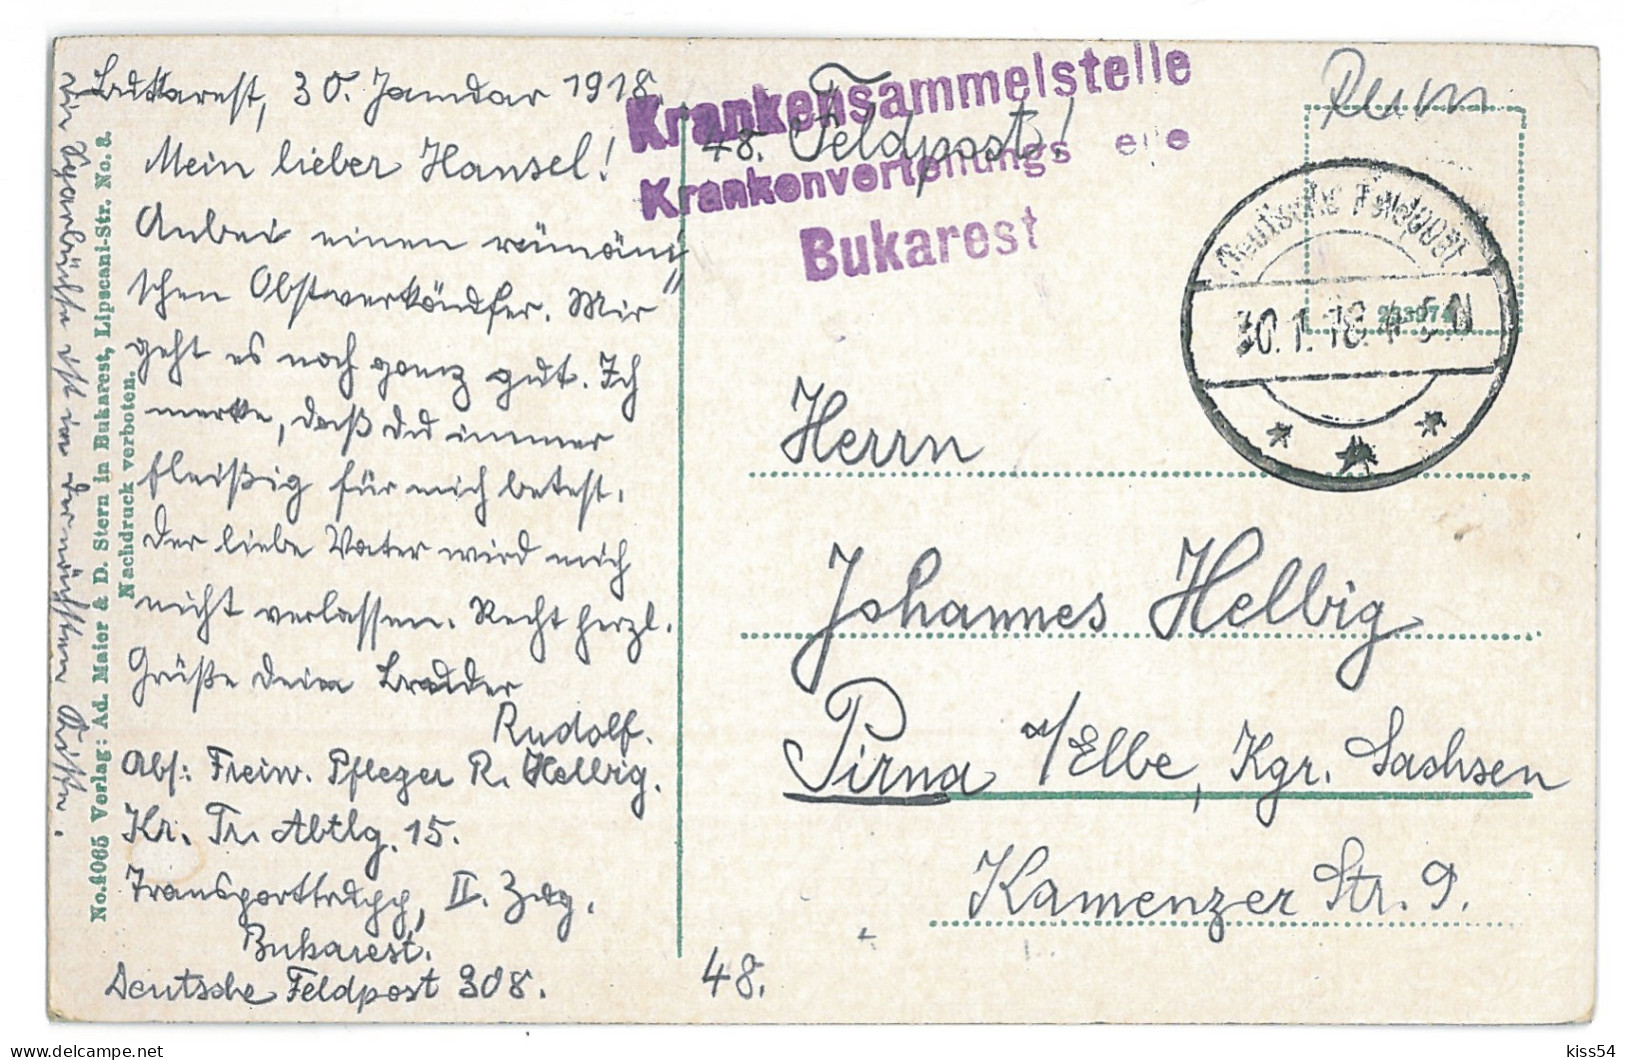 Bukarest, 30. Januar 1918.
Mein lieber Hansel!
Anbei einen rumäni
schen Obstverkäufer. Mir
geht es noch ganz gut. Ich
merke, daß du immer
fleißig für mich betest.
Der liebe Vater wird mich
nicht verlassen. Recht herzl.
Grüße Dein Bruder
Rudolf.
Abs: Freiw. Pfleger R. Helbig.
Kr. Tr. Abtlg. 15.
Transporttrupp, II. Zug.
Bukarest.
Deutsche Feldpost 308.
Die Sparbüchse ist in der nächsten Kiste.
No. 4065 Verlag: Ad. Maier & D. Stern in Bukarest, Lipscani-Str. No. 8.
Nachdruck verboten.
Krankensammelstelle
48. Feldpost!
Krankenverteilungs elle
Bukarest
Rum
Deutsche Feldpost
30.1.18. N
Herrn
Johannes Helbig
Pirna a/Elbe, Kgr. Sachsen
Kamenzer Str. 9.
48.
kiss54